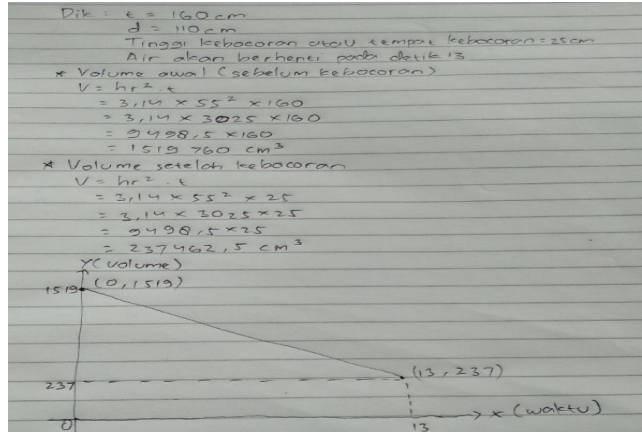 Dik : t = 160 cm
d = 110 cm
Tinggi kebocoran atau tempat kebocoran = 25 cm
Air akan berhenti pada detik 13
* Volume awal (sebelum kebocoran)
V = πr² . t
= 3,14 × 55² × 160
= 3,14 × 3025 × 160
= 9498,5 × 160
= 1519 760 cm³
* Volume setelah kebocoran
V = πr² . t
= 3,14 × 55² × 25
= 3,14 × 3025 × 25
= 9498,5 × 25
= 237462,5 cm³
Y (volume)
1519 (0, 1519)
237 (13, 237)
0 13 x (waktu)